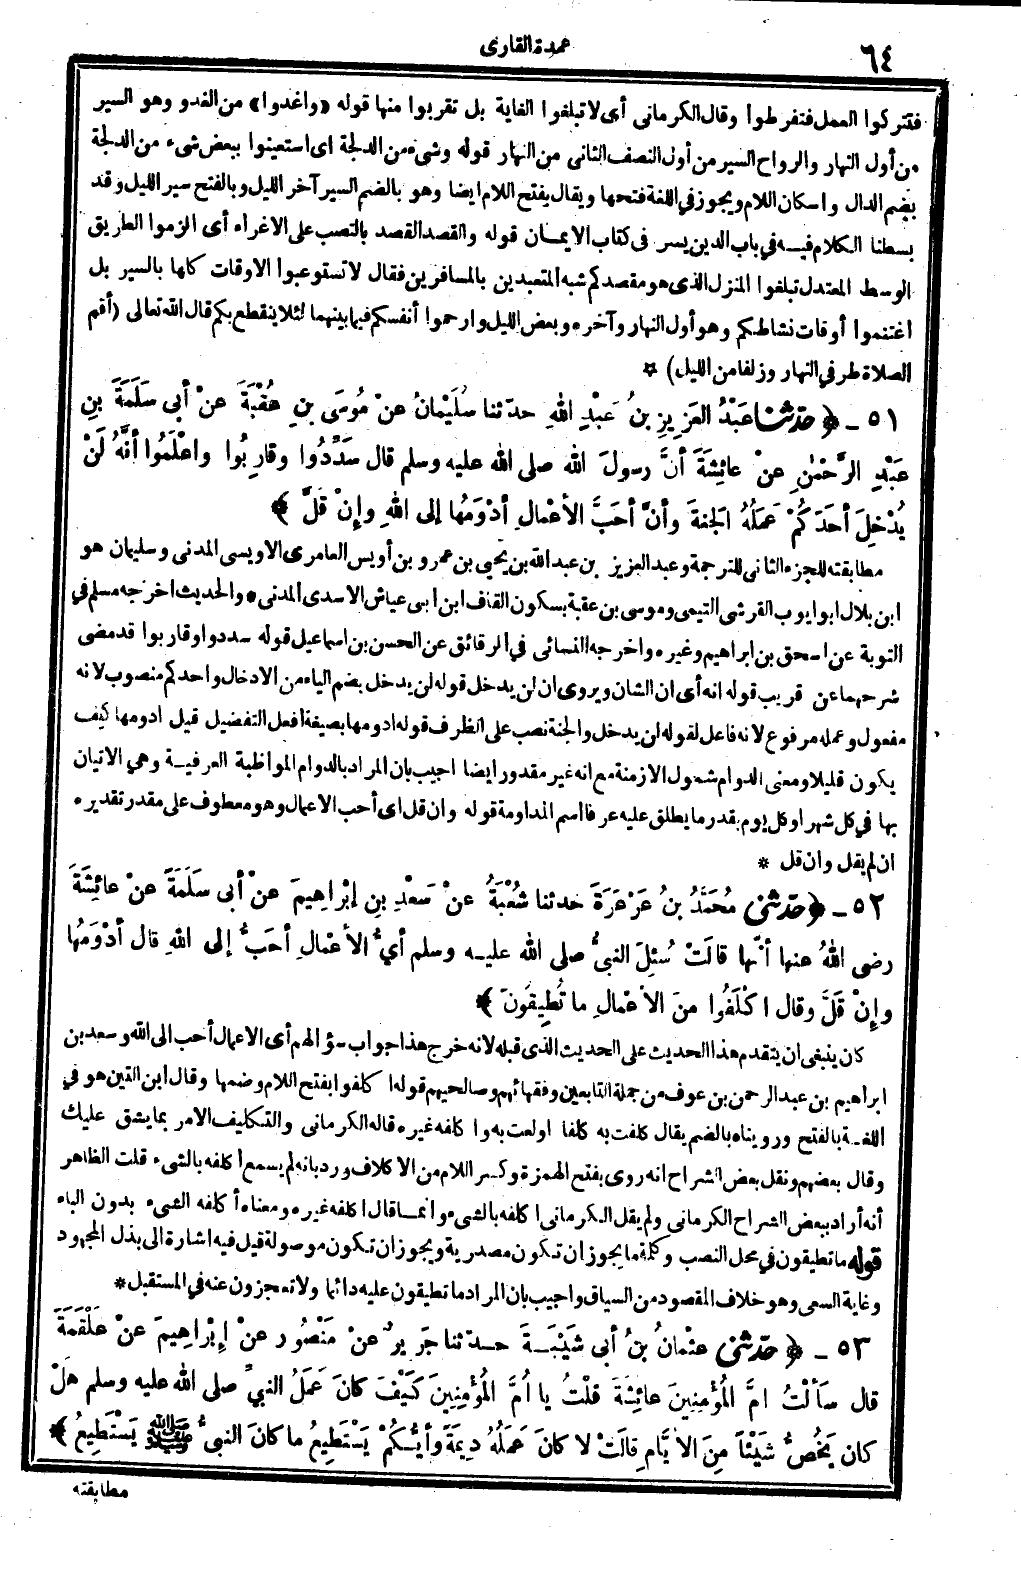 ٦٤
عمدة القارى
فتتركوا العمل فتفرطوا وقال الكرمانى أى لا تبلغوا الغاية بل تقربوا منها قوله «واغدوا» من الغدو وهو السير
من أول النهار والرواح السير من أول النصف الثانى من النهار قوله وشىء من الدلجة اى استعينوا ببعض شىء من الدلجة
بضم الدال واسكان اللام ويجوز في اللغة فتحها ويقال بفتح اللام ايضا وهو بالضم السير آخر الليل وبالفتح سير الليل وقد
بسطنا الكلام فيـه في باب الدين يسر فى كتاب الايمـان قوله والقصد القصد بالنصب على الاغراء أى الزموا الطريق
الوسط المعتدل تبلغوا المنزل الذى هو مقصدكم شبه المتعبدين بالمسافرين فقال لا تستوعبوا الاوقات كلها بالسير بل
اغتنموا أوقات نشاطكم وهو أول النهار وآخره وبعض الليل وارحموا أنفسكم فيما بينهما لئلا ينقطع بكم قال الله تعالى (أقم
الصلاة طرفي النهار وزلفا من الليل) *
٥١ ـ ﴿ حدثنا عَبْدُ العَزِيزِ بنُ عَبْدِ اللهِ حدثنا سُلَيْمانُ عنْ مُوسَى بنِ عُقْبَةَ عنْ أبى سَلَمَةَ بنِ
عَبْدِ الرَّحْمٰنِ عنْ عائِشَةَ أنَّ رسولَ الله صلى الله عليه وسلم قال سَدِّدُوا وقارِبُوا واعْلَمُوا أنَّهُ لَنْ
يُدْخِلَ أحَدَكُمْ عَمَلُهُ الجنةَ وأنَّ أحَبَّ الأعْمالِ أدْوَمُها إلى اللهِ وإنْ قَلَّ ﴾
مطابقته للجزء الثانى للترجمة وعبد العزيز بن عبد الله بن يحيى بن عمرو بن أويس العامرى الاويسى المدنى وسليمان هو
ابن بلال ابو ايوب القرشى التيمى وموسى بن عقبة بسكون القاف ابن ابى عياش الاسدى المدنى * والحديث اخرجه مسلم في
التوبة عن اسحق بن ابراهيم وغيره واخرجه النسائى في الرقائق عن الحسن بن اسماعيل قوله سددوا وقاربوا قد مضى
شرحهما عن قريب قوله انه أى ان الشان ويروى ان لن يدخل قوله لن يدخل بضم الياء من الادخال واحدكم منصوب لانه
مفعول وعمله مرفوع لانه فاعل لقوله لن يدخل والجنة نصب على الظرف قوله ادومها بصيغة افعل التفضيل قيل ادومها كيف
يكون قليلا ومعنى الدوام شمول الازمنة مع انه غير مقدور ايضا اجيب بان المراد بالدوام المواظبة العرفيـة وهي الاتيان
بها في كل شهر او كل يوم بقدر ما يطلق عليه عرفا اسم المداومة قوله وان قل اى أحب الاعمال وهو معطوف على مقدر تقديره
ان لم يقل وان قل *
٥٢ ـ ﴿ حدثنى مُحَمَّدُ بنُ عَرْعَرَةَ حدثنا شُعْبَةُ عنْ سَعْدِ بنِ إبْرَاهِيمَ عنْ أبى سَلَمَةَ عنْ عائِشَةَ
رضى اللهُ عنها أنَّها قالَتْ سُئِلَ النبىُّ صلى الله عليـه وسلم أىُّ الأعْمالِ أحَبُّ إلى اللهِ قال أدْوَمُها
وإنْ قَلَّ وقال اكْلَفُوا منَ الأعْمالِ ما تُطِيقُونَ ﴾
كان ينبغى ان يتقدم هذا الحديث على الحديث الذى قبله لانه خرج هذا جواب سؤالهم أى الاعمال أحب الى الله وسعد بن
ابراهيم بن عبد الرحمن بن عوف من جملة التابعين وفقهائهم وصالحيهم قوله اكلفوا بفتح اللام وضمها وقال ابن التين هو في
اللغـة بالفتح ورويناه بالضم يقال كلفت به كلفا اولعت به واكلفه غيره قاله الكرمانى والتكليف الامر بما يشق عليك
وقال بعضهم ونقل بعض الشراح انه روى بفتح الهمزة وكسر اللام من الاكلاف ورد بانه لم يسمع اكلفه بالشىء قلت الظاهر
أنه أراد ببعض الشراح الكرمانى ولم يقل الكرمانى اكلفه بالشىء وانمـا قال اكلفه غيره ومعناه أكلفه الشىء بدون الباء
قوله ما تطيقون في محل النصب وكلمة ما يجوز ان تكون مصدرية ويجوز ان تكون موصولة قيل فيه اشارة الى بذل المجهود
وغاية السعى وهو خلاف المقصود من السياق واجيب بان المراد ما تطيقون عليه دائما ولا تعجزون عنه في المستقبل *
٥٣ ـ ﴿ حدثنى عثْمانُ بنُ أبى شَيْبَـةَ حـدثنا جَرِيرٌ عنْ مَنْصُورٍ عنْ إبْرَاهِيمَ عنْ عَلْقَمَةَ
قال سَألْتُ امَّ المُؤْمِنِينَ عائِشَةَ قلْتُ يا أُمَّ المُؤْمِنِينَ كَيْفَ كانَ عَمَلُ النبىِّ صلى الله عليه وسلم هَلْ
كان يَخُصُّ شَيْئاً مِنَ الأيَّامِ قالَتْ لا كانَ عَمَلُهُ دِيمَةً وأيُّكُمْ يَسْتَطِيعُ ما كانَ النبىُّ ﷺ يَسْتَطِيعُ ﴾
مطابقته